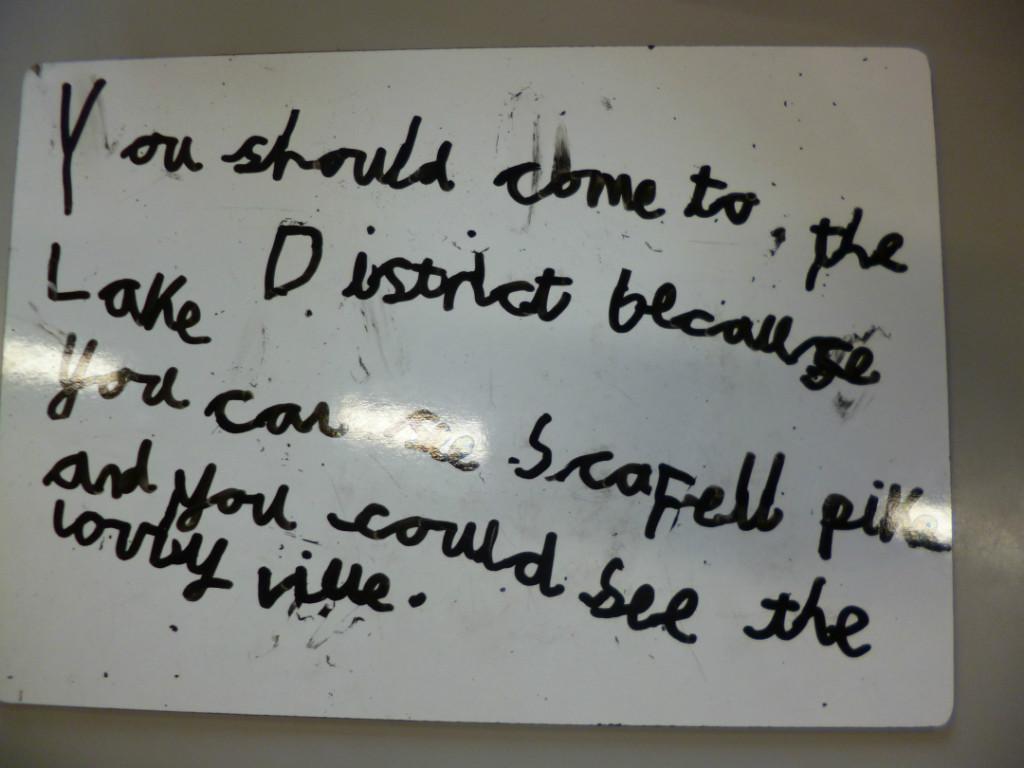 You should come to, the
Lake District because
you can see Scafell pike
and you could see the
lovly viue.